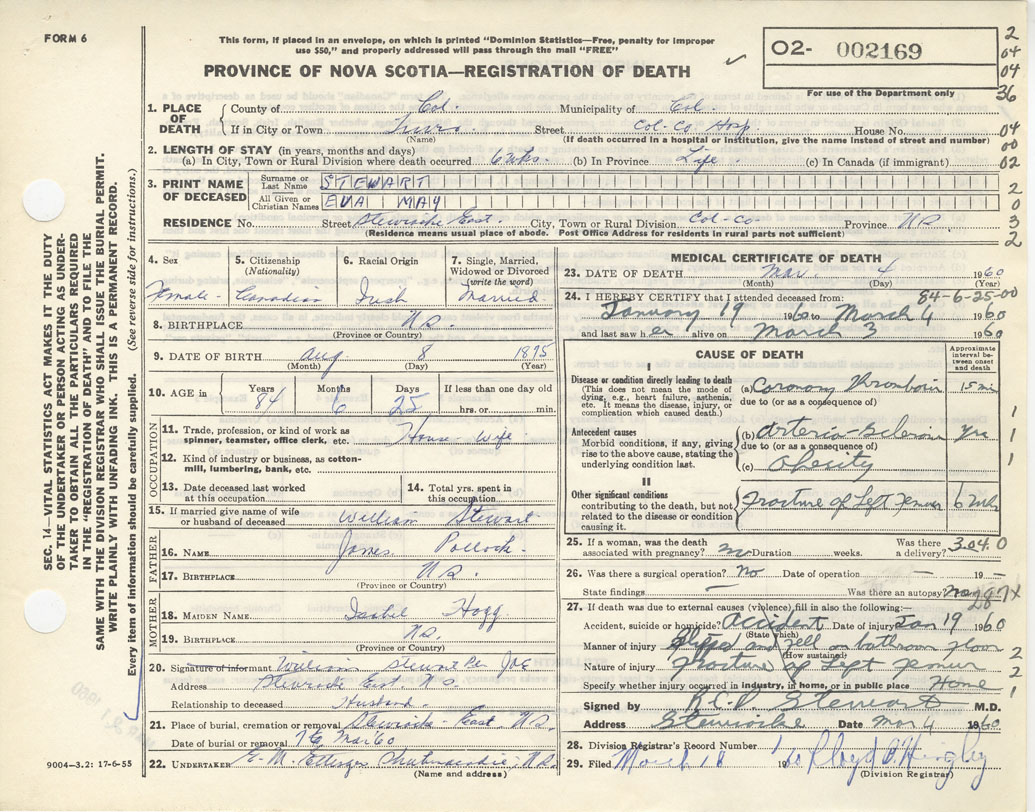 FORM 6
This form, if placed in an envelope, on which is printed "Dominion Statistics—Free, penalty for improper
use $50," and properly addressed will pass through the mail "FREE"
PROVINCE OF NOVA SCOTIA—REGISTRATION OF DEATH
02- 002169
For use of the Department only
2
04
04
36
04
00
02
2
0
3
2
SEC. 14—VITAL STATISTICS ACT MAKES IT THE DUTY
OF THE UNDERTAKER OR PERSON ACTING AS UNDER-
TAKER TO OBTAIN ALL THE PARTICULARS REQUIRED
IN THE "REGISTRATION OF DEATH" AND TO FILE THE
SAME WITH THE DIVISION REGISTRAR WHO SHALL ISSUE THE BURIAL PERMIT.
WRITE PLAINLY WITH UNFADING INK. THIS IS A PERMANENT RECORD.
Every item of information should be carefully supplied. (See reverse side for instructions.)
1. PLACE OF DEATH
County of Col. Municipality of Col.
If in City or Town Truro Street Col-Co Hosp. House No.
(Name) (If death occurred in a hospital or institution, give the name instead of street and number)
2. LENGTH OF STAY (in years, months and days)
(a) In City, Town or Rural Division where death occurred 6 wks. (b) In Province Life. (c) In Canada (if immigrant)
3. PRINT NAME OF DECEASED
Surname or Last Name STEWART
All Given or Christian Names EVA MAY
RESIDENCE No. Street Stewiacke East. City, Town or Rural Division Col-Co. Province NS
(Residence means usual place of abode. Post Office Address for residents in rural parts not sufficient)
4. Sex Female
5. Citizenship (Nationality) Canadian
6. Racial Origin Irish
7. Single, Married, Widowed or Divorced (write the word) Married
8. BIRTHPLACE N.S.
(Province or Country)
9. DATE OF BIRTH Aug 8 1875
(Month) (Day) (Year)
10. AGE in Years 84 Months 6 Days 25 If less than one day old hrs. or min.
OCCUPATION
11. Trade, profession, or kind of work as spinner, teamster, office clerk, etc. House-wife
12. Kind of industry or business, as cotton-mill, lumbering, bank, etc.
13. Date deceased last worked at this occupation
14. Total yrs. spent in this occupation
15. If married give name of wife or husband of deceased William Stewart
FATHER
16. NAME James Pollock.
17. BIRTHPLACE N.S.
(Province or Country)
MOTHER
18. MAIDEN NAME Isabel Hogg
19. BIRTHPLACE N.S.
(Province or Country)
20. Signature of informant William Stewart Per
Address Stewiacke East. N.S.
Relationship to deceased Husband.
21. Place of burial, cremation or removal Stewiacke-East N.S.
Date of burial or removal Mar 60
22. UNDERTAKER E. M. Ettinger Shubenacadie, N.S.
(Name and address)
9004—3.2: 17-6-55
MEDICAL CERTIFICATE OF DEATH
23. DATE OF DEATH Mar. 4 1960
(Month) (Day) (Year)
84-6-25-00
24. I HEREBY CERTIFY that I attended deceased from:
January 19 1960 to March 4 1960
and last saw her alive on March 3 1960
CAUSE OF DEATH
Approximate interval between onset and death
I
Disease or condition directly leading to death
(This does not mean the mode of dying, e.g., heart failure, asthenia, etc. It means the disease, injury, or complication which caused death.)
(a) Coronary Thrombosis 15 min
due to (or as a consequence of)
Antecedent causes
Morbid conditions, if any, giving rise to the above cause, stating the underlying condition last.
(b) Arterio-sclerosis yrs
due to (or as a consequence of)
(c) Obesity
1
1
1
II
Other significant conditions
contributing to the death, but not related to the disease or condition causing it.
Fracture of Left Femur 6 wks
25. If a woman, was the death associated with pregnancy? no Duration weeks. Was there a delivery? 3.04.0
26. Was there a surgical operation? No Date of operation 19
State findings Was there an autopsy? no
27. If death was due to external causes (violence) fill in also the following:—
Accident, suicide or homicide? Accident Date of injury Jan 19 1960
(State which)
Manner of injury Slipped and fell on bathroom floor 2
(How sustained)
Nature of injury Fracture of Left Femur 2
Specify whether injury occurred in industry, in home, or in public place Home 1
Signed by Stewart M.D.
Address Stewiacke Date Mar 4 1960
28. Division Registrar's Record Number
29. Filed March 18 19 60 Lloyd
(Division Registrar)